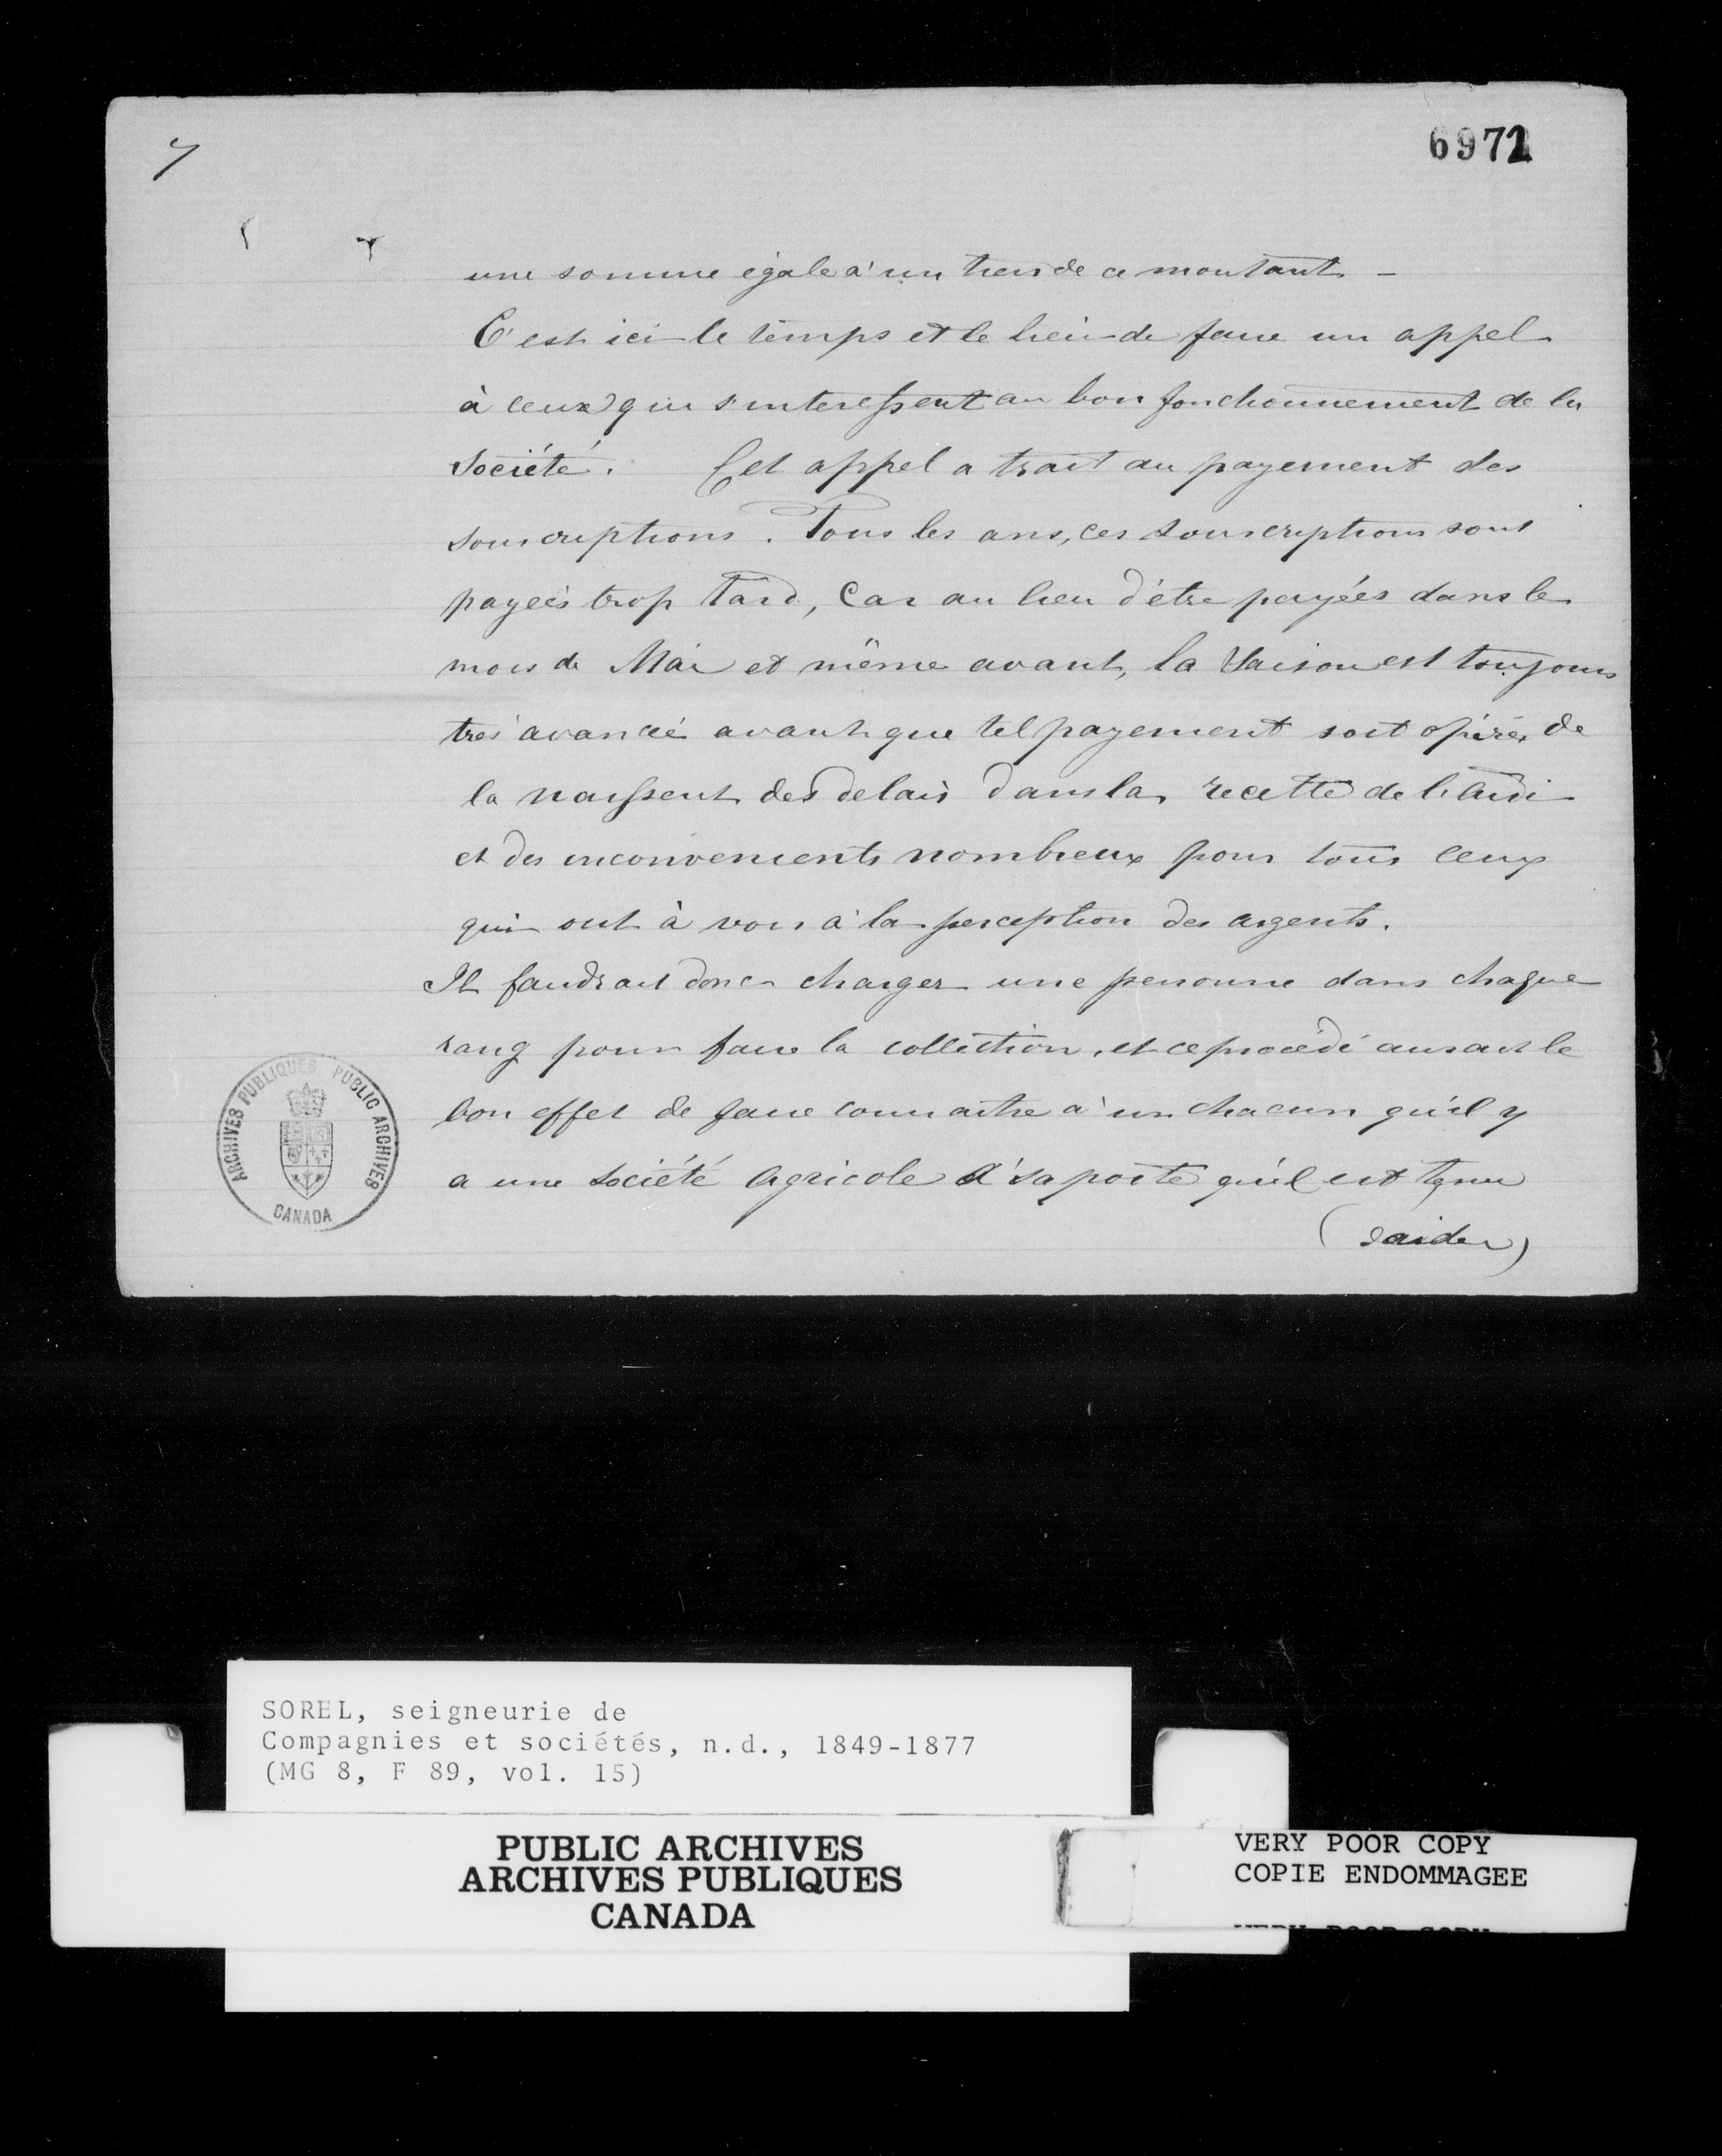 7
6972
une somme égale à un tiers de ce montant -
C'est ici le temps et le lieu de faire un appel
à ceux qui s'interessent au bon fonctionnement de la
Société. Cet appel a trait au payement des
souscriptions. Tous les ans, ces souscriptions sont
payeés trop tard, car au lieu d'être payées dans le
mois de Mai et même avant, la saison est toujours
très avancé avant que tel payement soit opéré, de
la naissent des delais dans la recette de l'aide
et des inconvenients nombreux pour tous ceux
qui ont à voir à la perception des argents.
Il faudrait donc charger une personne dans chaque
rang pour faire la collection, et ce procédé aurait le
bon effet de faire connaitre à un chacun qu'il y
a une société agricole à sa porte qu'il est tenu
(d'aider)
ARCHIVES PUBLIQUES PUBLIC ARCHIVES
CANADA
SOREL, seigneurie de
Compagnies et sociétés, n.d., 1849-1877
(MG 8, F 89, vol. 15)
PUBLIC ARCHIVES
ARCHIVES PUBLIQUES
CANADA
VERY POOR COPY
COPIE ENDOMMAGEE
VERY POOR COPY